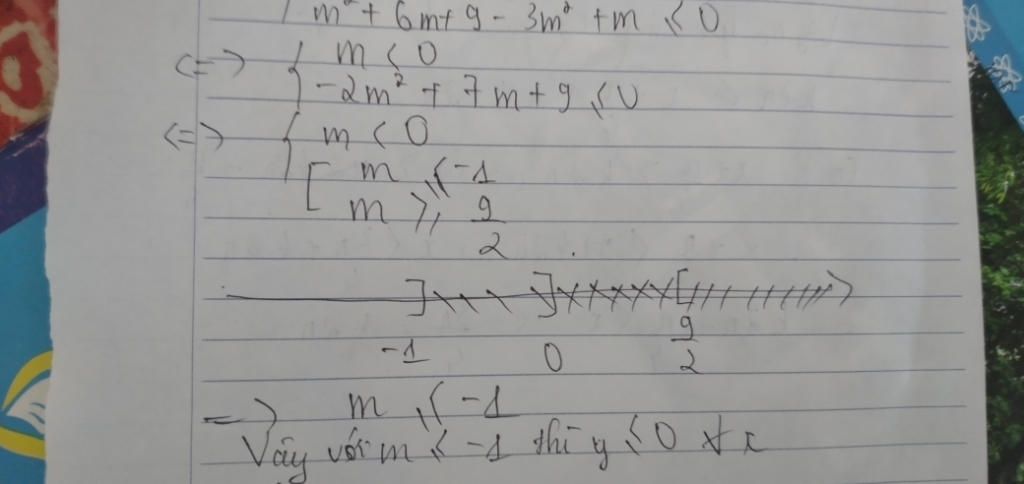 m² + 6m + 9 - 3m² + m ≤ 0
<=> { m < 0
-2m² + 7m + 9 ≤ 0
<=> { m < 0
[ m ≤ -1
m ≥ 9/2
-1 0 9/2
=> m ≤ -1
Vậy với m ≤ -1 thì y ≤ 0 ∀ x